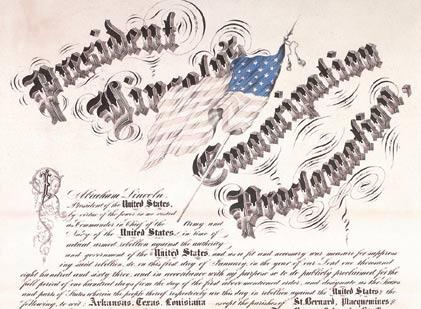 President
Lincoln's
Emancipation
Proclamation.
I Abraham Lincoln
President of the United States,
by virtue of the power in me vested
as Commander in Chief of the Army and
Navy of the United States, in time of
actual armed rebellion against the authority
and government of the United States, and as a fit and necessary war measure for suppress
ing said rebellion, do, on this first day of January, in the year of our Lord one thousand
eight hundred and sixty three, and in accordance with my purpose so to do publicly proclaimed for the
full period of one hundred days from the day of the first above mentioned order, and designate as the States
and parts of States wherein the people thereof respectively are this day in rebellion against the United States; the
following, to wit: Arkansas, Texas, Louisiana except the parishes of St. Bernard, Placquemines